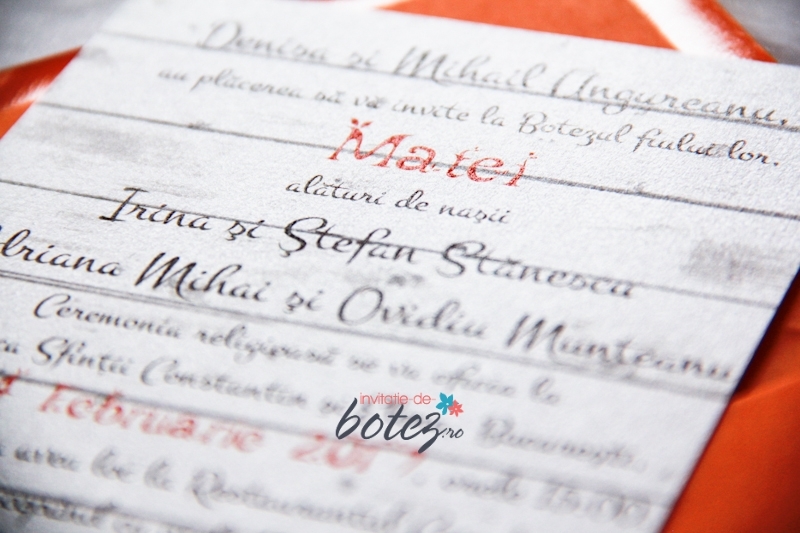 Denisa și Mihail Ungureanu,
au plăcerea să vă invite la Botezul fiului lor.
Matei
alături de nașii
Irina și Ștefan Stănescu
Adriana Mihai și Ovidiu Munteanu
Ceremonia religioasă se va oficia la
Sfinții Constantin București,
Februarie 2017
avea loc la Restaurantul
invitatie-de-
botez.ro